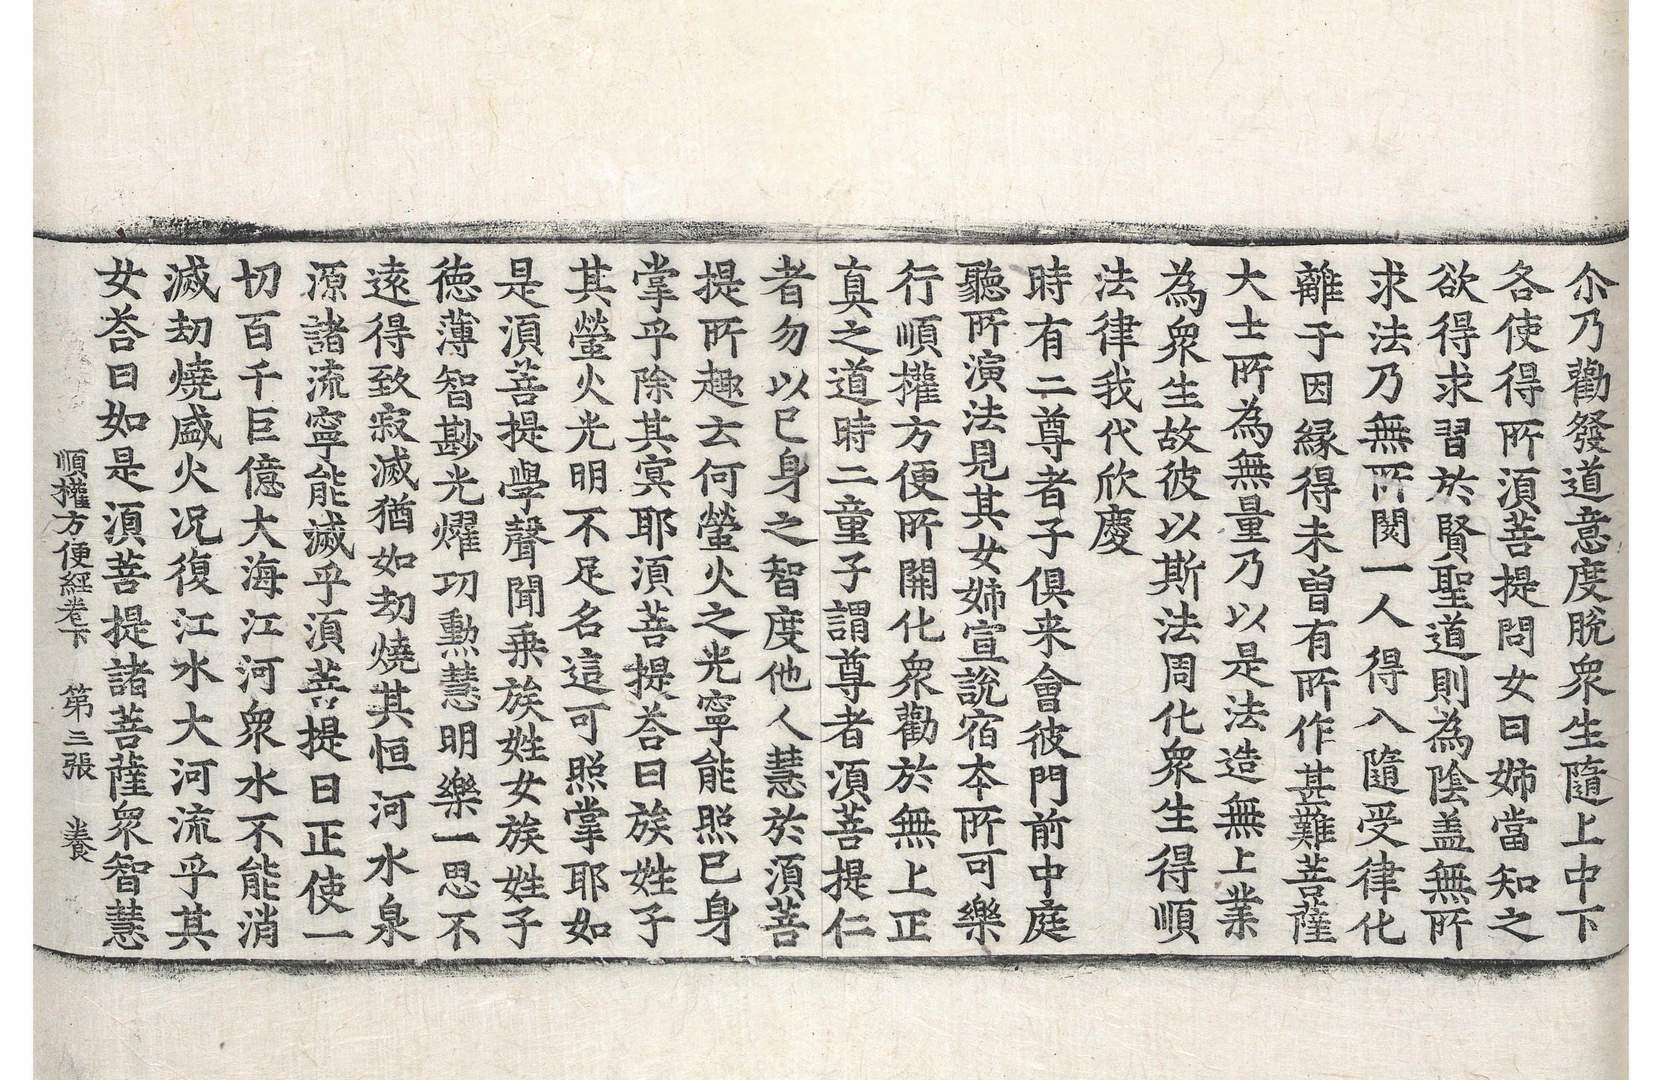 尒乃勸發道意度脫衆生隨上中下
各使得所湏菩提問女曰姉當知之
欲得求習於賢聖道則為陰盖無所
求法乃無所閡一人得入隨受律化
離于因緣得未曽有所作甚難菩薩
大士所為無量乃以是法造無上業
為衆生故彼以斯法周化衆生得順
法律我代欣慶
時有二尊者子俱来會彼門前中庭
聽所演法見其女姉宣說宿本所可樂
行順權方便所開化衆勸於無上正
真之道時二童子謂尊者湏菩提仁
者勿以已身之智度他人慧於湏菩
提所趣云何螢火之光寧能照已身
掌乎除其冥耶湏菩提荅曰族姓子
其螢火光明不足名這可照掌耶如
是湏菩提學聲聞乗族姓女族姓子
德薄智尠光燿功勲慧明樂一思不
遠得致寂滅猶如劫燒其恒河水泉
源諸流寧能滅乎湏菩提曰正使一
切百千巨億大海江河衆水不能消
滅劫燒盛火况復江水大河流乎其
女荅曰如是湏菩提諸菩薩衆智慧
順權方便經卷下 第三張 養